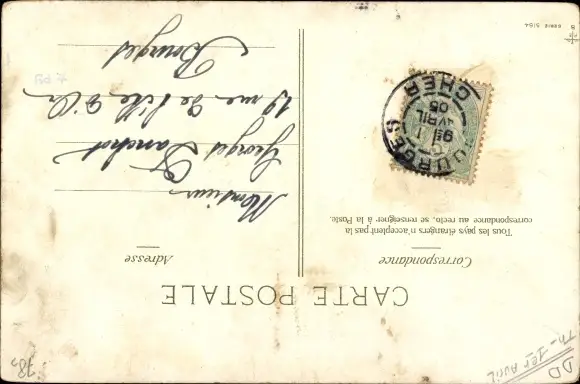 CARTE POSTALE
Correspondance
Tous les pays étrangers n'acceptent pas la
correspondance au recto, se renseigner à la Poste.
Adresse
Monsieur
Georges
19 rue de
Bourges
BOURGES
AVRIL
05
CHER
SERIE 5164
DD
1er Avril